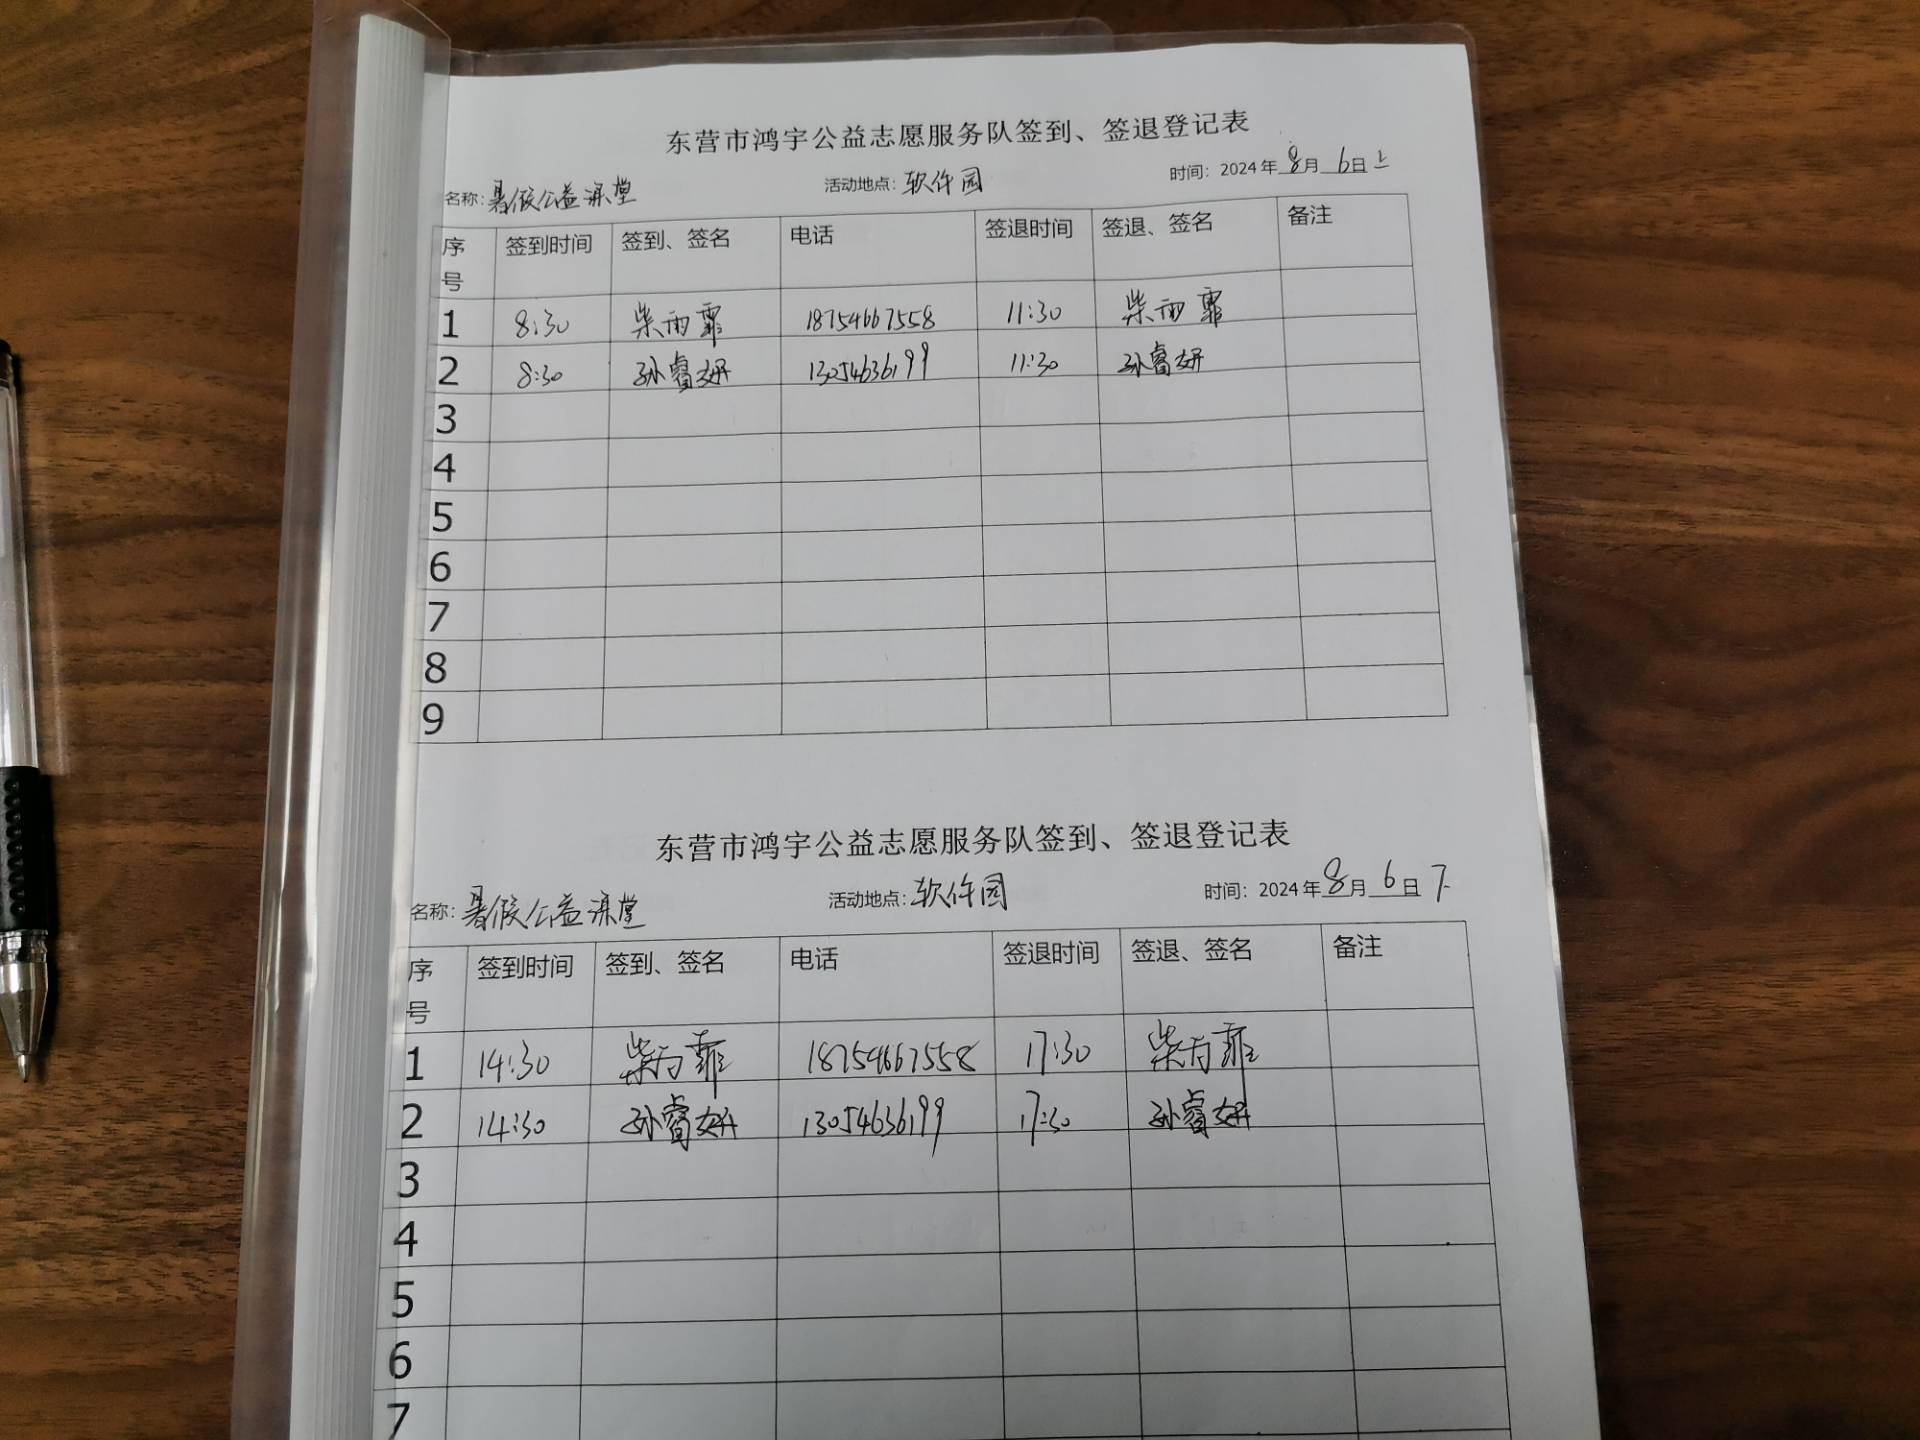 东营市鸿宇公益志愿服务队签到、签退登记表
名称：暑假公益课堂 活动地点：软件园 时间：2024年8月6日上
序号 签到时间 签到、签名 电话 签退时间 签退、签名 备注
1 8:30 柴雨霏 18754667558 11:30 柴雨霏
2 8:30 孙睿妍 13054636199 11:30 孙睿妍
3
4
5
6
7
8
9
东营市鸿宇公益志愿服务队签到、签退登记表
名称：暑假公益课堂 活动地点：软件园 时间：2024年8月6日下
序号 签到时间 签到、签名 电话 签退时间 签退、签名 备注
1 14:30 柴雨霏 18754667558 17:30 柴雨霏
2 14:30 孙睿妍 13054636199 17:30 孙睿妍
3
4
5
6
7